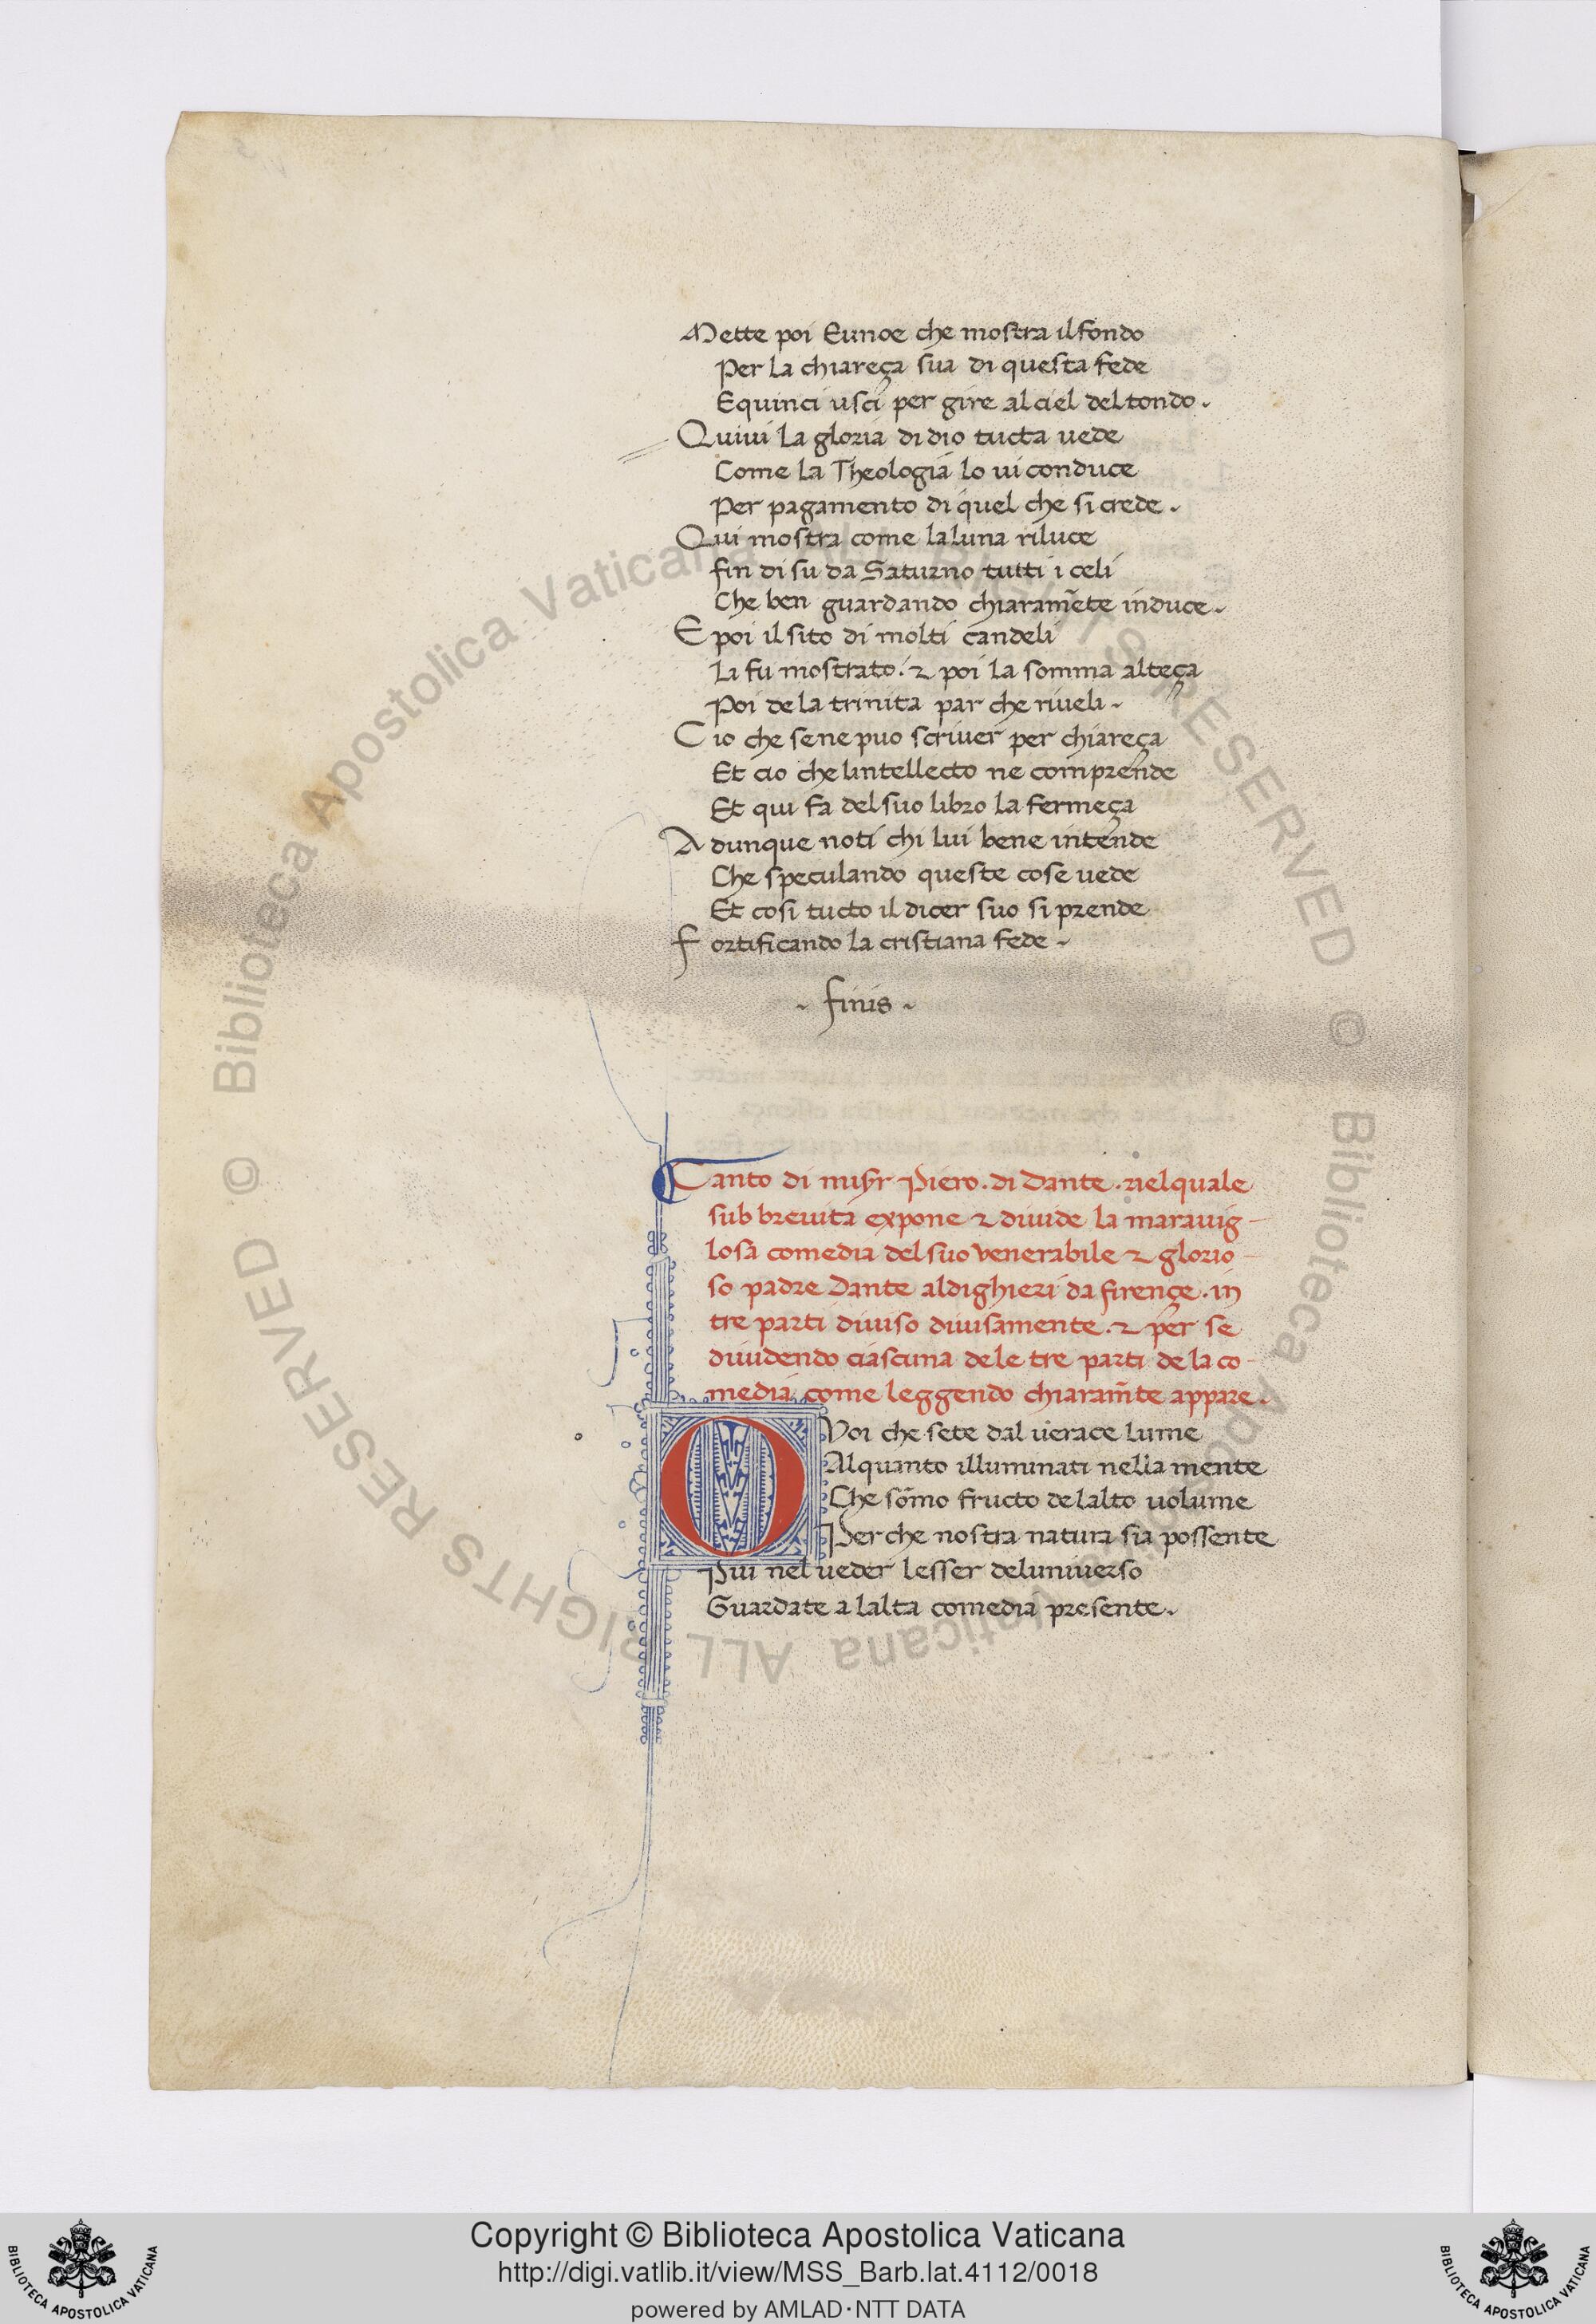 Mette poi Eunoe che mostra il fondo
Per la chiareça sua di questa fede
E quinci usci per gire al ciel del tondo.
Quivi la gloria di dio tucta vede
Come la Theologia lo vi conduce
Per pagamento di quel che si crede.
Qui mostra come la luna riluce
fin di su da Saturno tutti i celi
Che ben guardando chiaram̃ete induce.
E poi il sito di molti candeli
Li fu mostrato. & poi la somma alteça
Poi de la trinita par che riveli.
Cio che se ne puo scriver per chiareça
Et cio che lintellecto ne comprende
Et qui fa del suo libro la fermeça
Adunque noti chi lui bene intende
Che speculando queste cose vede
Et cosi tucto il dicer suo si prende
Fortificando la cristiana fede.
. finis .
Canto di misyr Piero. di Dante. nel quale
sub brevita expone & divide la maravig-
losa comedia del suo venerabile & glorio-
so padre Dante aldighieri da firençe. in
tre parti diviso divisamente. & per se
dividendo ciascuna de le tre parti de la co-
media come leggendo chiaram̃te appare.
O Voi che sete dal verace lume
Alquanto illuminati nella mente
Che som̃o fructo de lalto volume
Perche nostra natura sia possente
Piu nel veder lesser deluniverso
Guardate a lalta comedia presente.
© Biblioteca Apostolica Vaticana ALL RIGHTS RESERVED © Biblioteca Apostolica Vaticana ALL RIGHTS RESERVED
Copyright © Biblioteca Apostolica Vaticana
http://digi.vatlib.it/view/MSS_Barb.lat.4112/0018
powered by AMLAD·NTT DATA
BIBLIOTECA APOSTOLICA VATICANA
BIBLIOTECA APOSTOLICA VATICANA